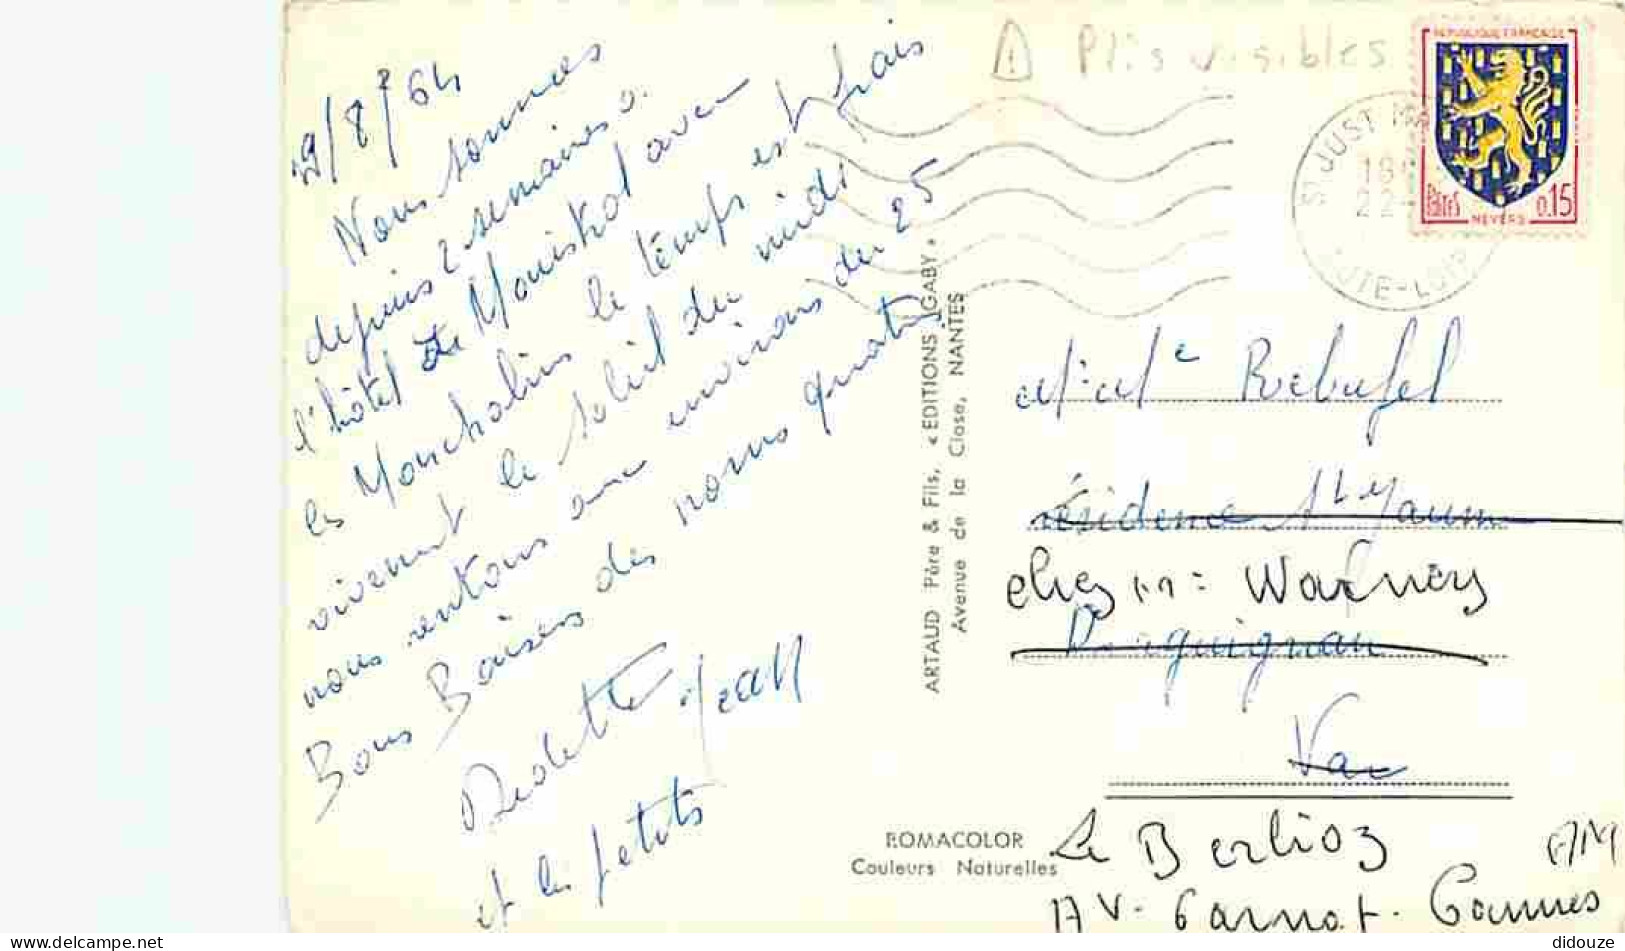 29/8/64
Nous sommes
depuis 2 semaines à
l'hôtel de Monistrol avec
les Monchalin le temps est frais
vivement le soleil du midi
nous rentrons aux environs du 25
Bons Baisers de nous quatre
Jean
et les petits
⚠ Plis visibles
REPUBLIQUE FRANÇAISE
POSTES
0,15
NEVERS
ST JUST MA
18
22
HAUTE-LOIRE
ARTAUD Père & Fils, « EDITIONS GABY »
Avenue de la Close, NANTES
M. Me Rebufel
résidence St Jaume
chez Mr: Warnery
Draguignan
Var
ROMACOLOR
Couleurs Naturelles
Le Berlioz
AM
AV. Carnot. Cannes
didouze